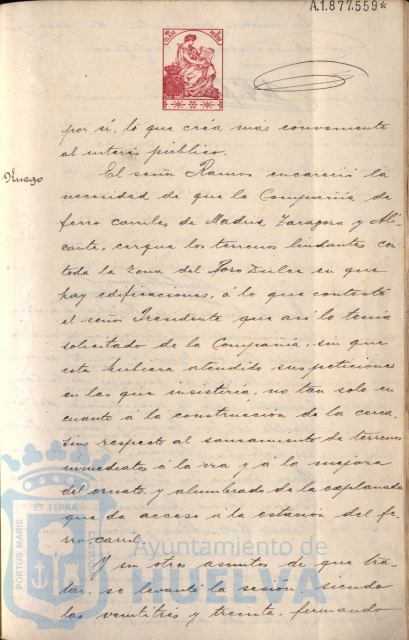 A.1.877.559*
por sí, lo que crea mas conveniente
al interés público.
Ruego
El señor Ramos encareció la
necesidad de que la Compañia de
ferro carriles de Madrid Zaragoza y Ali
cante, cerque los terrenos lindantes con
toda la zona del Poro Dulce en que
hay edificaciones, á lo que contestó
el señor Presidente que asi lo tenia
solicitado de la Compañia, sin que
esta hubiera atendido sus peticiones
en las que insistiria, no tan solo en
cuanto á la construcción de la cerca,
sino respecto al saneamiento de terrenos
inmediatos á la via y á la mejora
del ornato y alumbrado de la explanada
que da acceso á la estación del fe
rro-carril.
Y sin otros asuntos de que tra-
tar, se levantó la sesión, siendo
las veintitres y treinta, firmando
PORTUS MARIS
ET TERRÆ
Ayuntamiento de
HUELVA